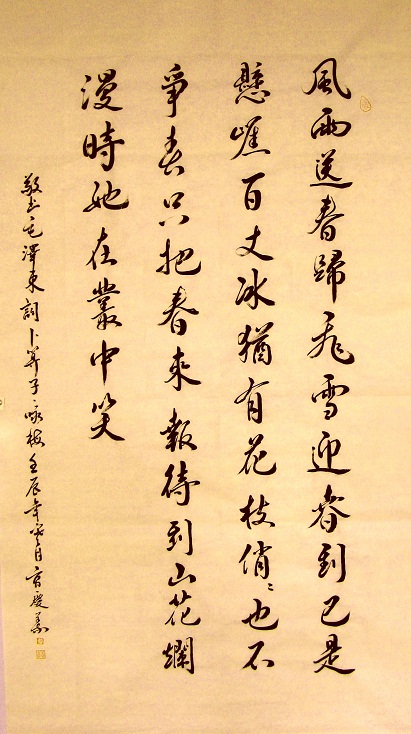 風雨送春歸飛雪迎春到已是
懸崖百丈冰猶有花枝俏〻也不
爭春只把春來報待到山花爛
漫時她在叢中笑
敬書毛澤東詞卜算子詠梅壬辰年